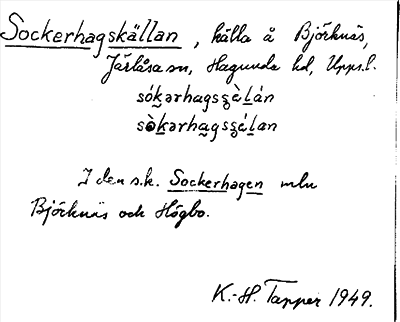 Sockerhagskällan, källa å Björknäs,
Järlåsa sn, Hagunda hd, Upps.l.
sók̬ərhagsʂèl̬án
sòk̬ərha̬gsʂél̬an
I den s.k. Sockerhagen mln
Björknäs och Högbo.
K.-H. Tapper 1949.